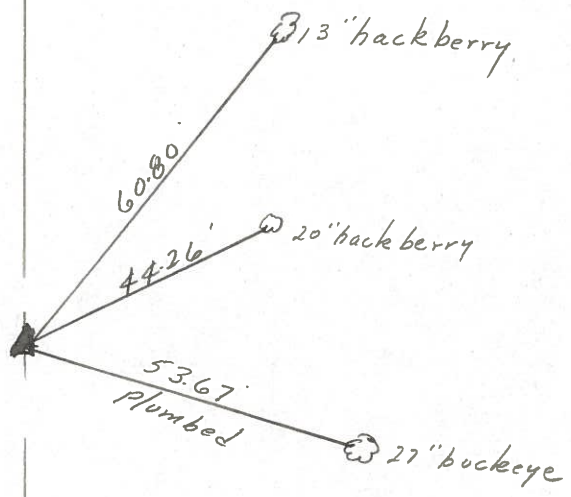 13" hackberry
60.80'
20" hackberry
44.26'
53.67'
Plumbed
27" buckeye